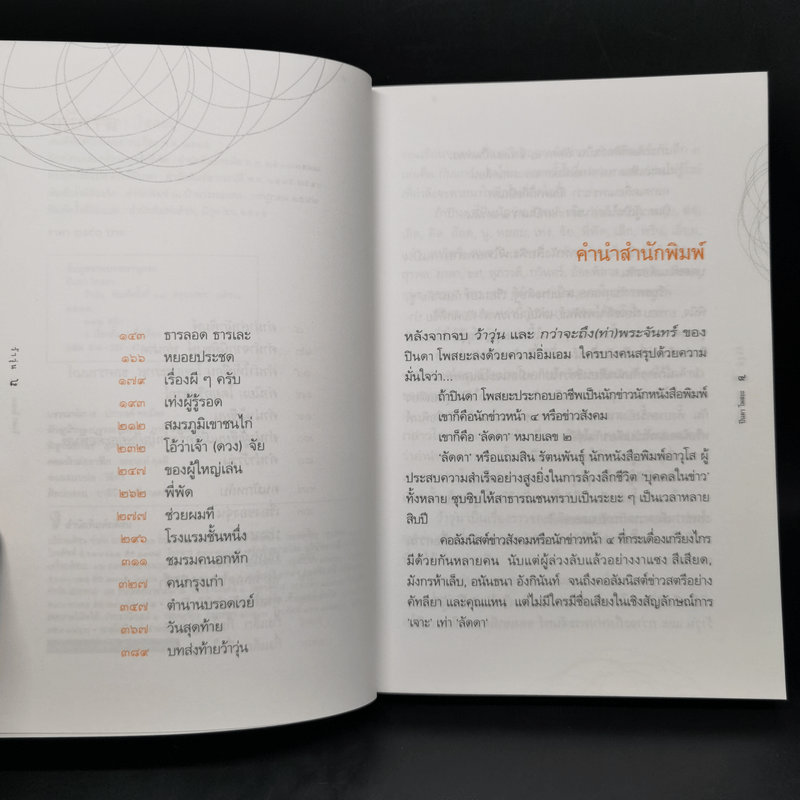 ๑๔๓ ธารลอด ธารเละ
๑๖๖ หยอยประชด
๑๗๙ เรื่องผี ๆ ครับ
๑๙๓ เท่งผู้รู้รอด
๒๑๒ สมรภูมิเขาชนไก่
๒๓๒ โอ้ว่าเจ้า (ดวง) จัย
๒๔๗ ของผู้ใหญ่เล่น
๒๖๒ พี่พัด
๒๗๗ ช่วยผมที
๒๙๖ โรงแรมชั้นหนึ่ง
๓๑๑ ชมรมคนอกหัก
๓๒๗ คนกรุงเก่า
๓๔๗ ตำนานบรอดเวย์
๓๖๗ วันสุดท้าย
๓๘๙ บทส่งท้ายว้าวุ่น
ว้าวุ่น
คำนำสำนักพิมพ์
หลังจากจบ ว้าวุ่น และ กว่าจะถึง(ท่า)พระจันทร์ ของ
ปินดา โพสยะลงด้วยความอิ่มเอม ใครบางคนสรุปด้วยความ
มั่นใจว่า...
ถ้าปินดา โพสยะประกอบอาชีพเป็นนักข่าวนักหนังสือพิมพ์
เขาก็คือนักข่าวหน้า ๔ หรือข่าวสังคม
เขาก็คือ 'ลัดดา' หมายเลข ๒
'ลัดดา' หรือแถมสิน รัตนพันธุ์ นักหนังสือพิมพ์อาวุโส ผู้
ประสบความสำเร็จอย่างสูงยิ่งในการล้วงลึกชีวิต 'บุคคลในข่าว'
ทั้งหลาย ซุบซิบให้สาธารณชนทราบเป็นระยะ ๆ เป็นเวลาหลาย
สิบปี
คอลัมนิสต์ข่าวสังคมหรือนักข่าวหน้า ๔ ที่กระเดื่องเกรียงไกร
มีด้วยกันหลายคน นับแต่ผู้ล่วงลับแล้วอย่างงาแซง สีเสียด,
มังกรห้าเล็บ, อนันธนา อังกินันท์ จนถึงคอลัมนิสต์ข่าวสตรีอย่าง
คัทลียา และคุณแหน แต่ไม่มีใครมีชื่อเสียงในเชิงสัญลักษณ์การ
'เจาะ' เท่า 'ลัดดา'
ปินดา โพสยะ